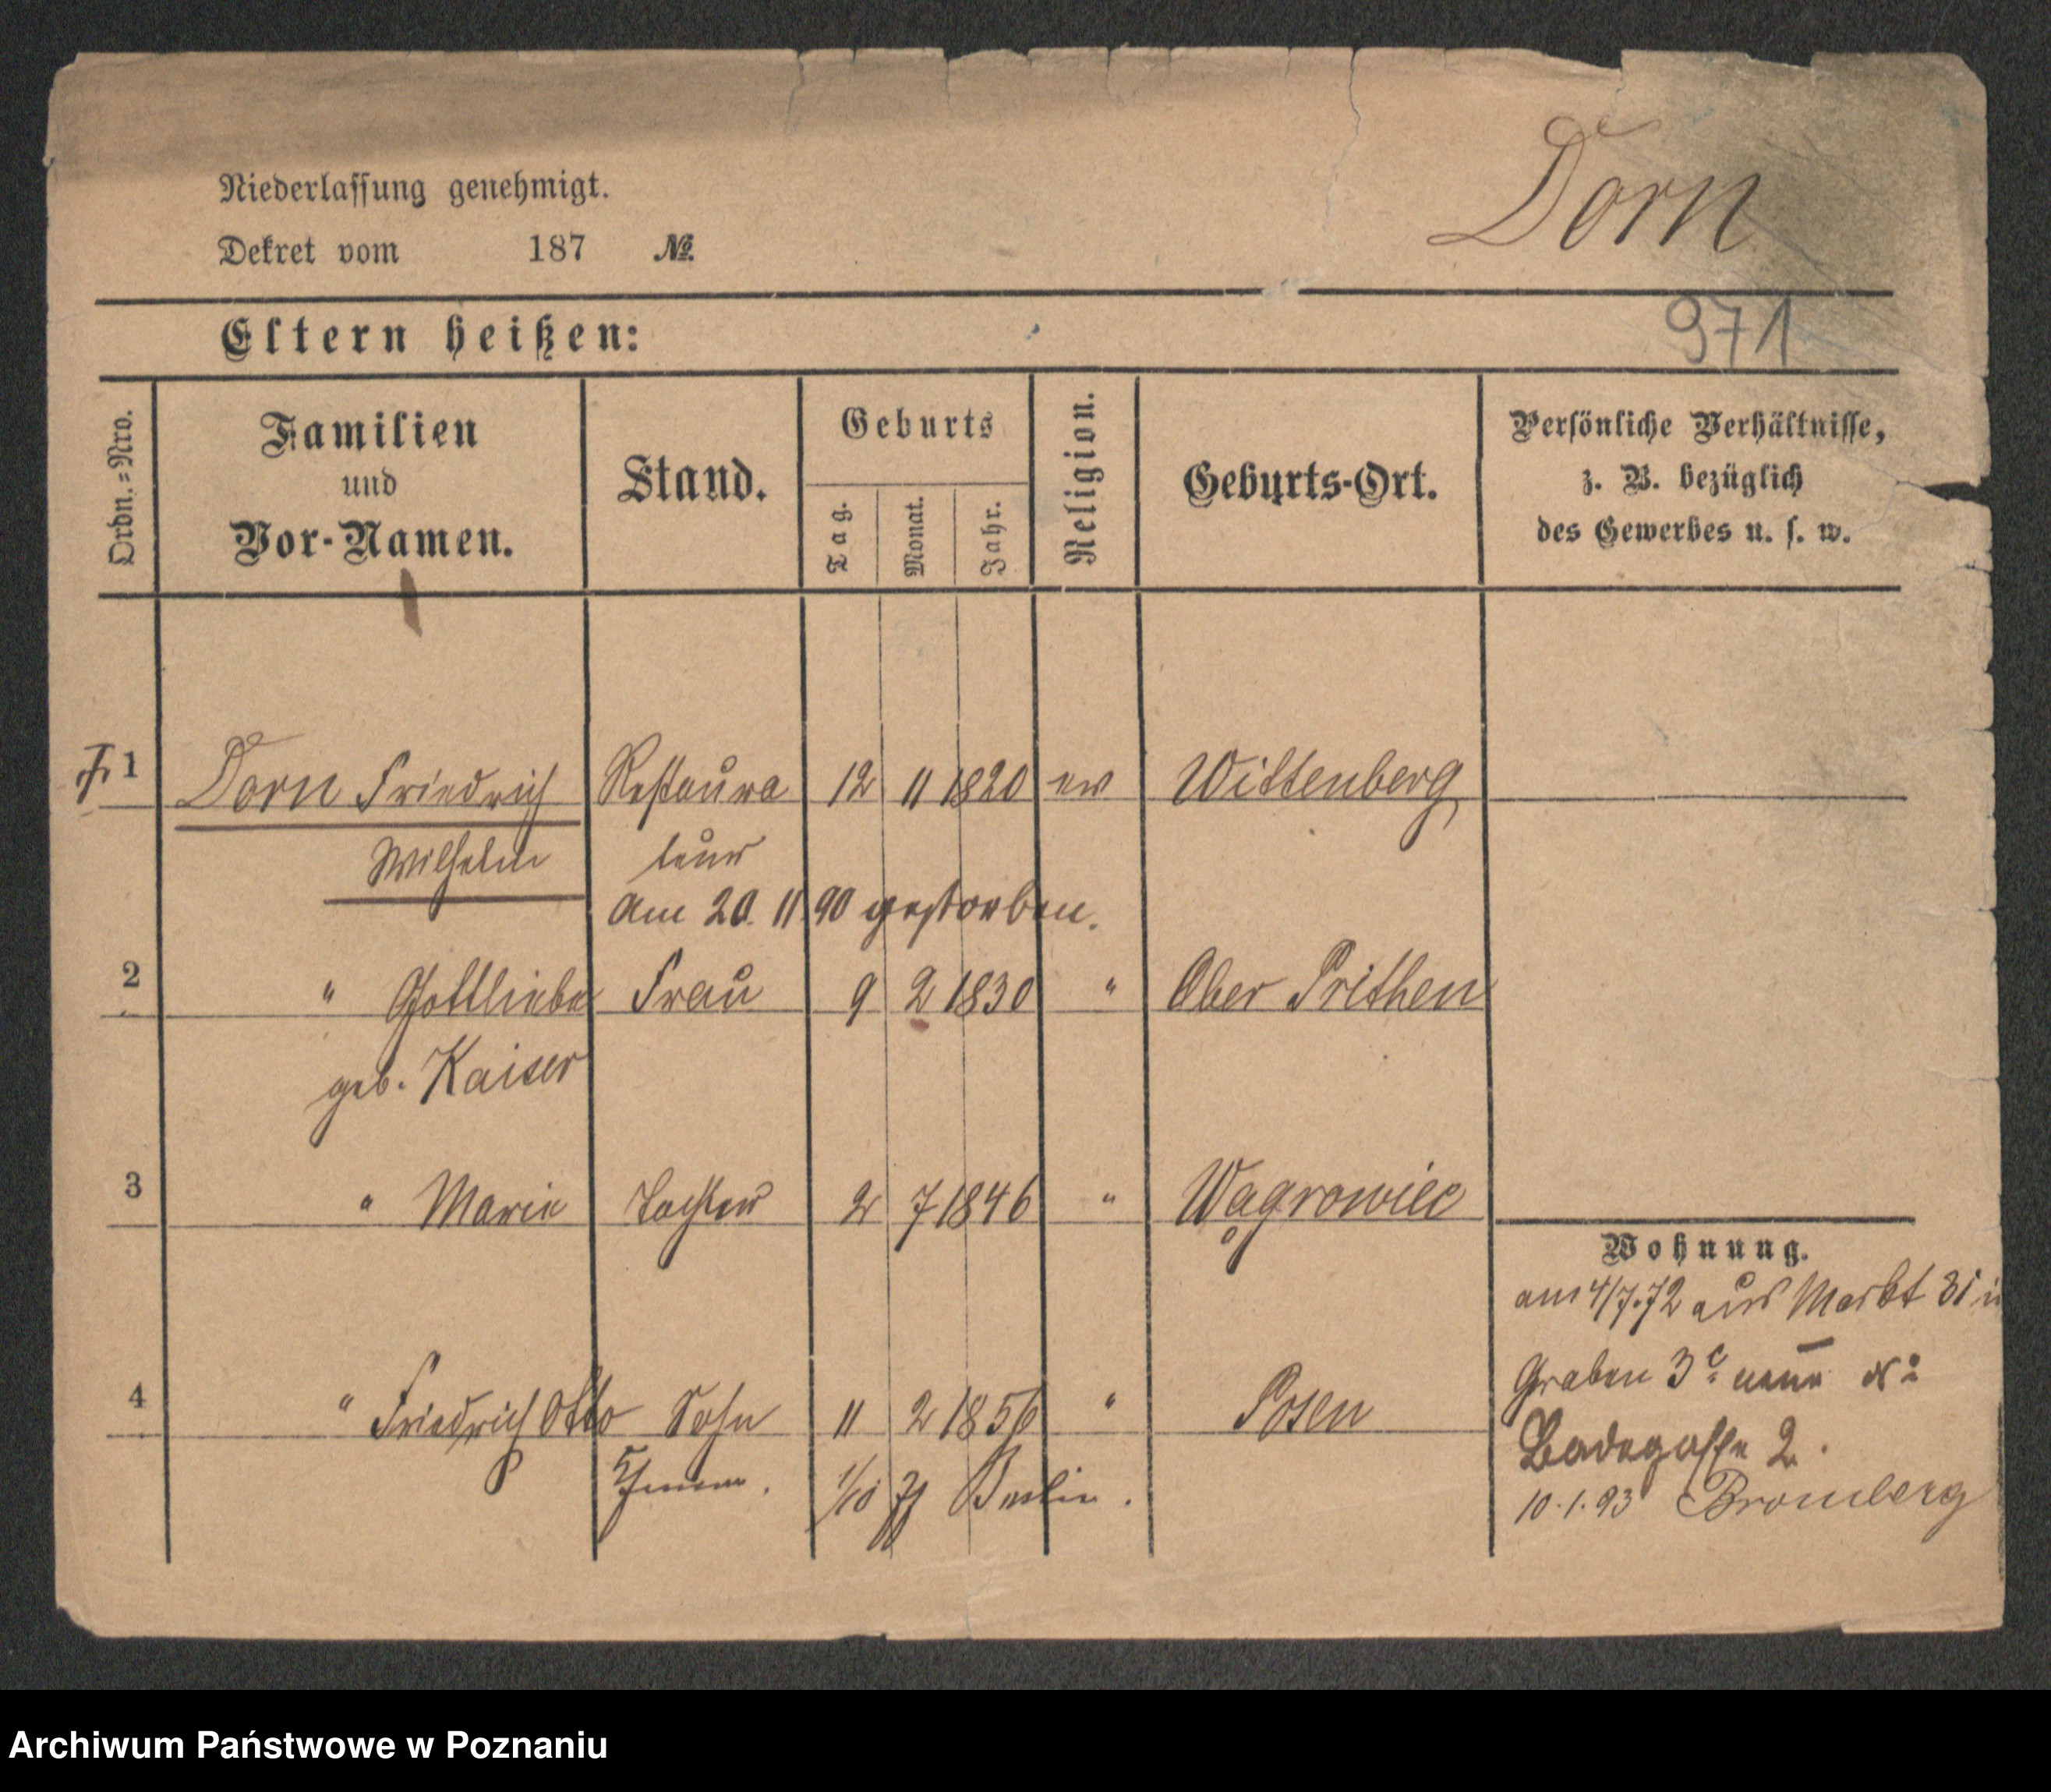 Niederlassung genehmigt.
Dorn
Dekret vom 187 №
Eltern heißen:
971
Ordn.-Nro.
Familien
und
Vor-Namen.
Stand.
Geburts
Tag.
Monat.
Jahr.
Religion.
Geburts-Ort.
Persönliche Verhältnisse,
z. B. bezüglich
des Gewerbes u. s. w.
1 Dorn Friedrich Restaura 12 11 1820 ev Wittenberg
Wilhelm teur
Am 20. 11. 90 gestorben.
2 " Gottliebe Frau 9 2 1830 " Ober Prithen
geb. Kaiser
3 " Marie Tochter 2 7 1846 " Wągrowiec
Wohnung.
am 4/7.72 aus Markt 81 in
Graben 3c neue №
4 " Friedrich Otto Sohn 11 2 1856 " Posen
Badegasse 2.
1/10 71 Berlin.
10.1.93 Bromberg
Archiwum Państwowe w Poznaniu